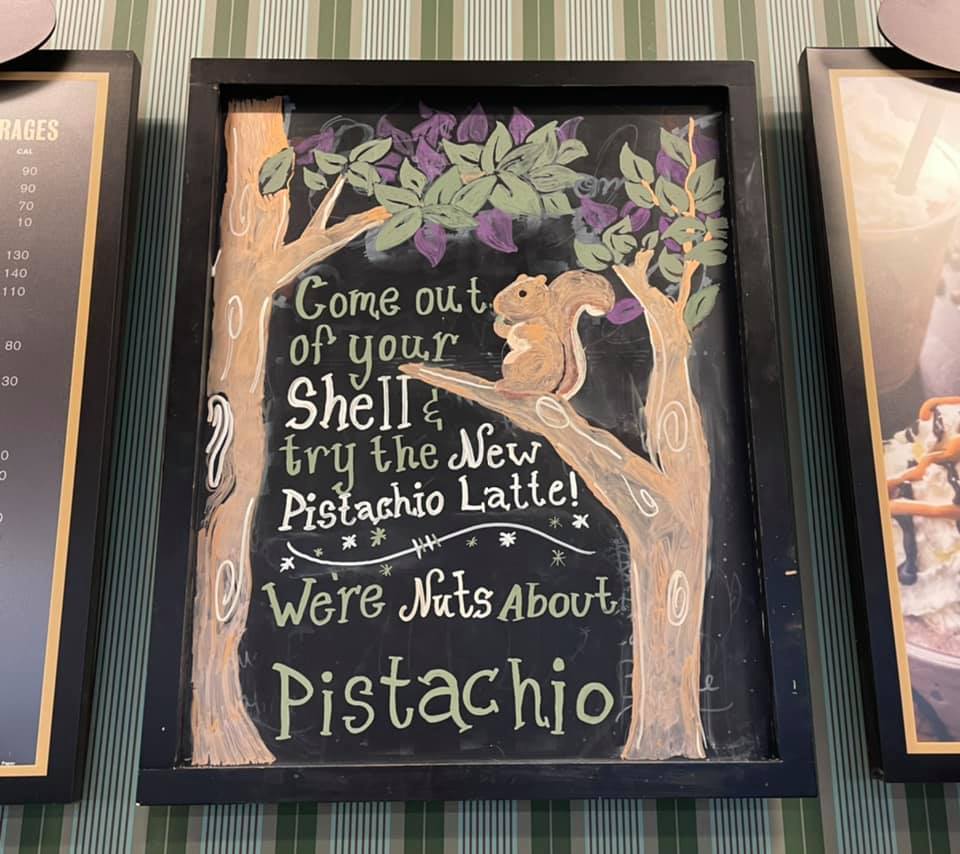 Come out
of your
Shell &
try the New
Pistachio Latte!
We're Nuts About
Pistachio
RAGES
CAL
90
90
70
10
130
140
110
80
30
0
0
0